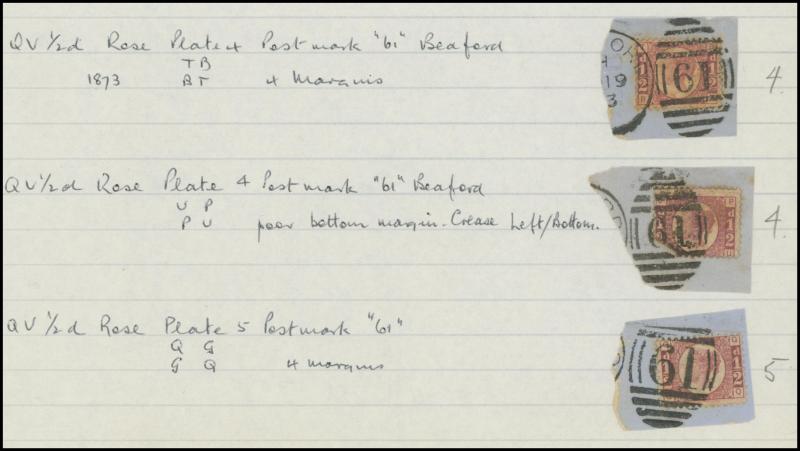 QV 1/2d Rose Plate 4 Postmark "61" Beaford
TB
1873 BT 4 Marquis
61
19
3
4
QV 1/2d Rose Plate 4 Postmark "61" Beaford
U P
P U poor bottom margin. Crease Left/Bottom.
61
4.
QV 1/2d Rose Plate 5 Postmark "61"
Q G
G Q 4 marquis
61
5